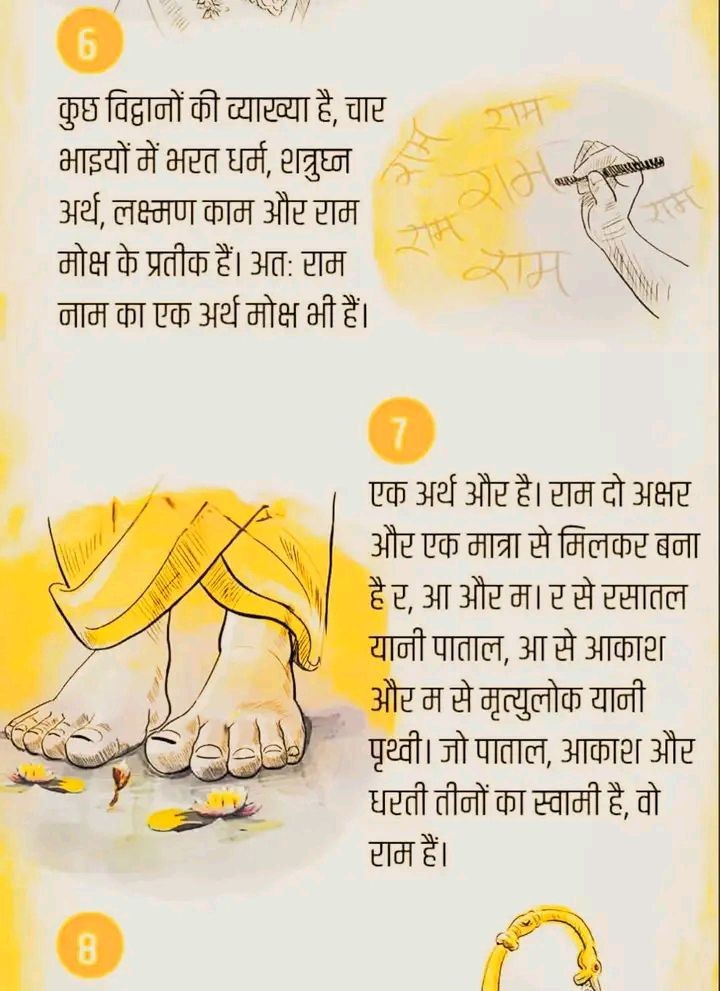 6
कुछ विद्वानों की व्याख्या है, चार
भाइयों में भरत धर्म, शत्रुघ्न
अर्थ, लक्ष्मण काम और राम
मोक्ष के प्रतीक हैं। अतः राम
नाम का एक अर्थ मोक्ष भी हैं।
राम
राम
राम
राम
राम
राम
7
एक अर्थ और है। राम दो अक्षर
और एक मात्रा से मिलकर बना
है र, आ और म। र से रसातल
यानी पाताल, आ से आकाश
और म से मृत्युलोक यानी
पृथ्वी। जो पाताल, आकाश और
धरती तीनों का स्वामी है, वो
राम हैं।
8